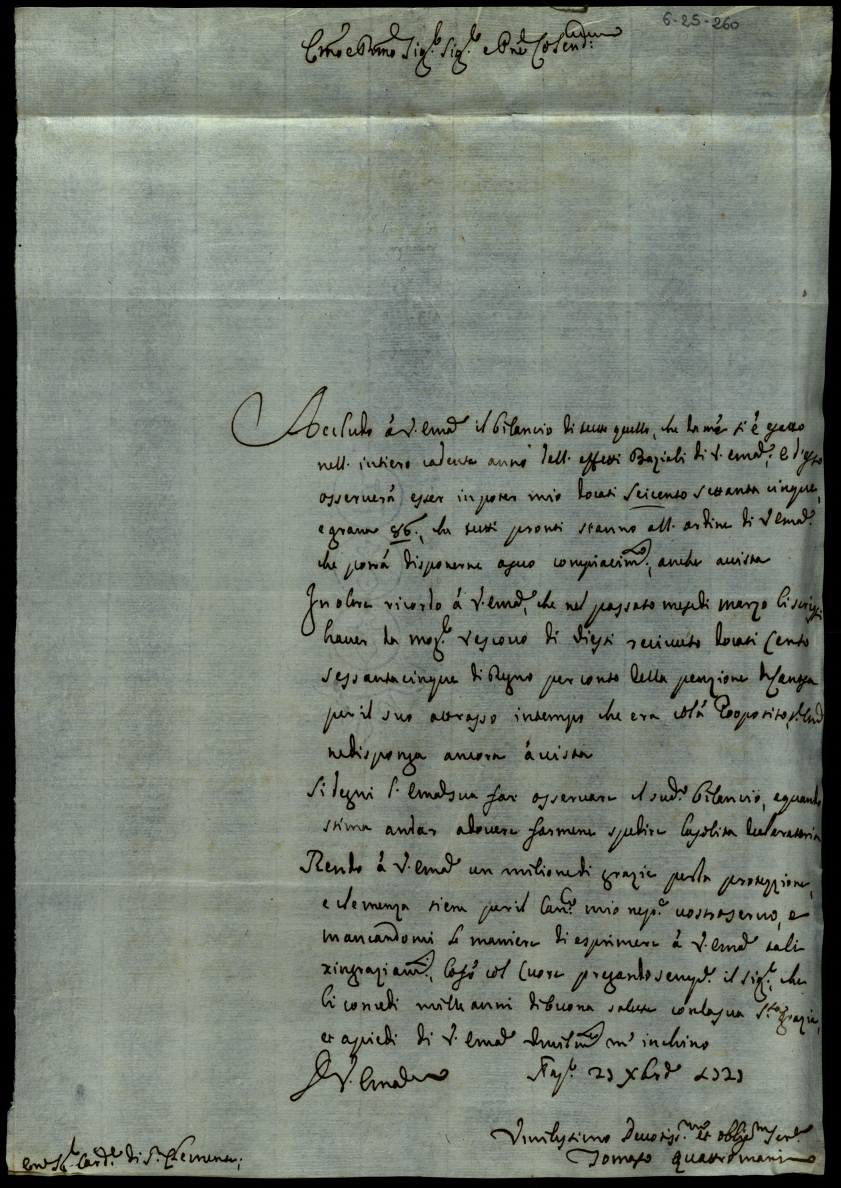 6-25-260
Em̃o e Rm̃o Sig.r Sig.r e Pñe Col.mo
Accludo à V. Em̃a il bilancio di tutto quello, che da mè si è
nell. intiero cadente anno dell. effetti Baziali di V. Em̃a, e
osserverà esser in poter mio docati Seicento settanta cinque,
e grana 86., che tutti pronti stanno all. ordine di V. Em̃a
che potrà disponerne a suo compiacim.to, anche a vista
In oltre ricordo à V. Em̃a, che nel passato mese di marzo li scrissi
haver da mog.r Vescovo di receuuto docati Cento
sessantacinque di Regno per conto della penzione
per il suo attrasso in tempo che era colà Proposito,
ne disponga ancora à vista
Si degni l'. Em̃a sua far osservare il sud.o bilancio, e quando
stima andar a dovere farmene spedire la solita declaratoria
Rendo à V. Em̃a un milione di grazie per la protezzione,
e clemenza tiene per il Can.co mio nep.e vostro servo, e
mancandomi le maniere di esprimere à V. Em̃a tali
ringraziam.ti, col Cuore pregando sempre il Sig.re, che
li concedi mille anni di buona salute con la sua S.ta grazia,
et a piedi di V. Em̃a Umilm.te m' inchino
D. V. Em̃a
Nap. 23 Xbre 1723
Umilissimo Devotiss.mo et oblig.mo Ser.e
Tomaso Quattromani
Em̃o Sig.r Card.le di S. Clemente;